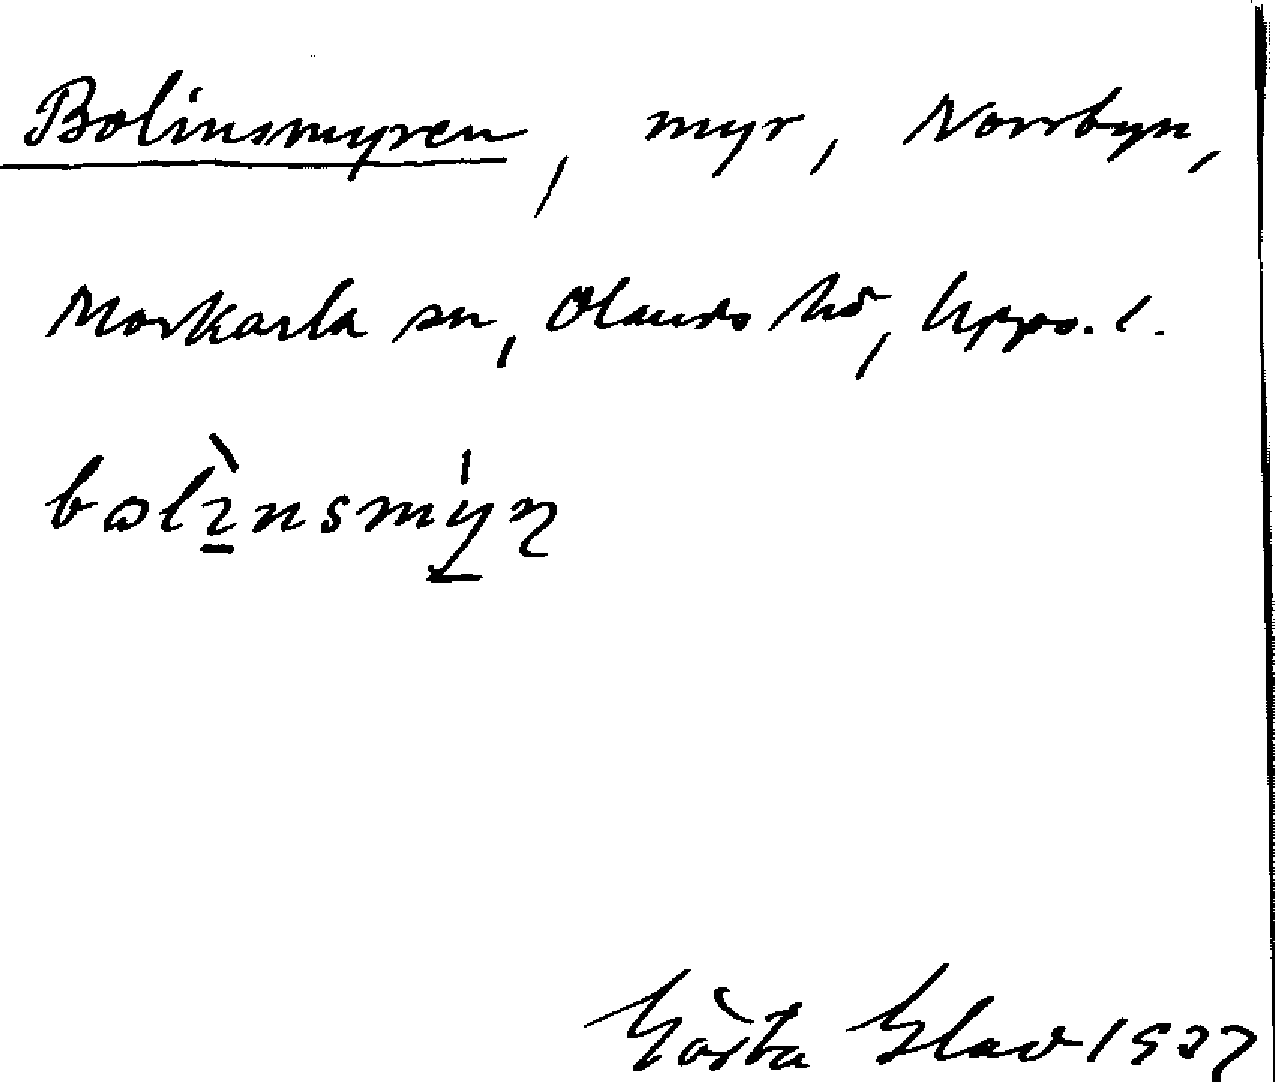 Bolinsmyren, myr, Norrbyn,
Morkarla sn, Olands hd, Upps. l.
Gösta Glad 1937